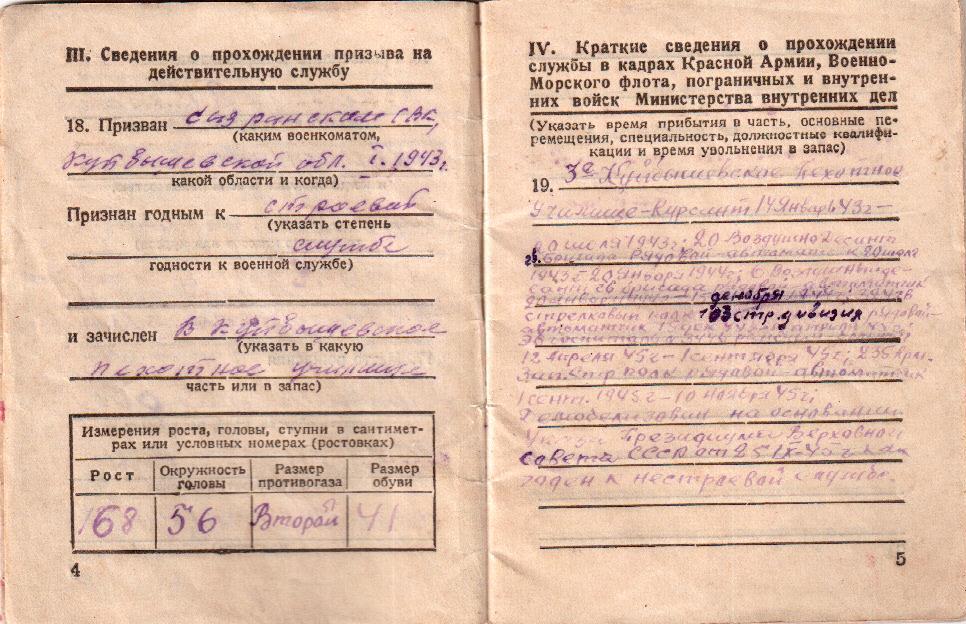 III. Сведения о прохождении призыва на
действительную службу
18. Призван Сызранском ГВК,
(каким военкоматом,
Куйбышевской обл. I. 1943г.
какой области и когда)
Признан годным к строевой
(указать степень
службе
годности к военной службе)
и зачислен В Куйбышевское
(указать в какую
пехотное училище
часть или в запас)
Измерения роста, головы, ступни в сантимет-
рах или условных номерах (ростовках)
Рост Окружность головы Размер противогаза Размер обуви
168 56 Второй 41
4
IV. Краткие сведения о прохождении
службы в кадрах Красной Армии, Военно-
Морского флота, пограничных и внутрен-
них войск Министерства внутренних дел
(Указать время прибытия в часть, основные пе-
ремещения, специальность, должностные квалифи-
кации и время увольнения в запас)
19. 3е Куйбышевское Пехотное
Училище-Курсант 14 Январь 43г-
20 июля 1943г; 20 Воздушно Десант
бригада Рядовой-автоматчик 20 июля
1943г-20 января 1944г; 6 Воздушно де-
сант 26 бригада
декабря
стрелковый полк 103 стр. дивизия рядовой-
автоматчик 1 дек
12 Апреля 45г-1 сентября 45г; 236 Арм.
Зап. Стр полк рядовой-автоматчик
1 сент. 1945г-10 ноября 45г;
Демобелизован на основании
Указа Президиума Верховной
Совета СССР от 25 IX-45г как
годен к нестроевой службе.
5